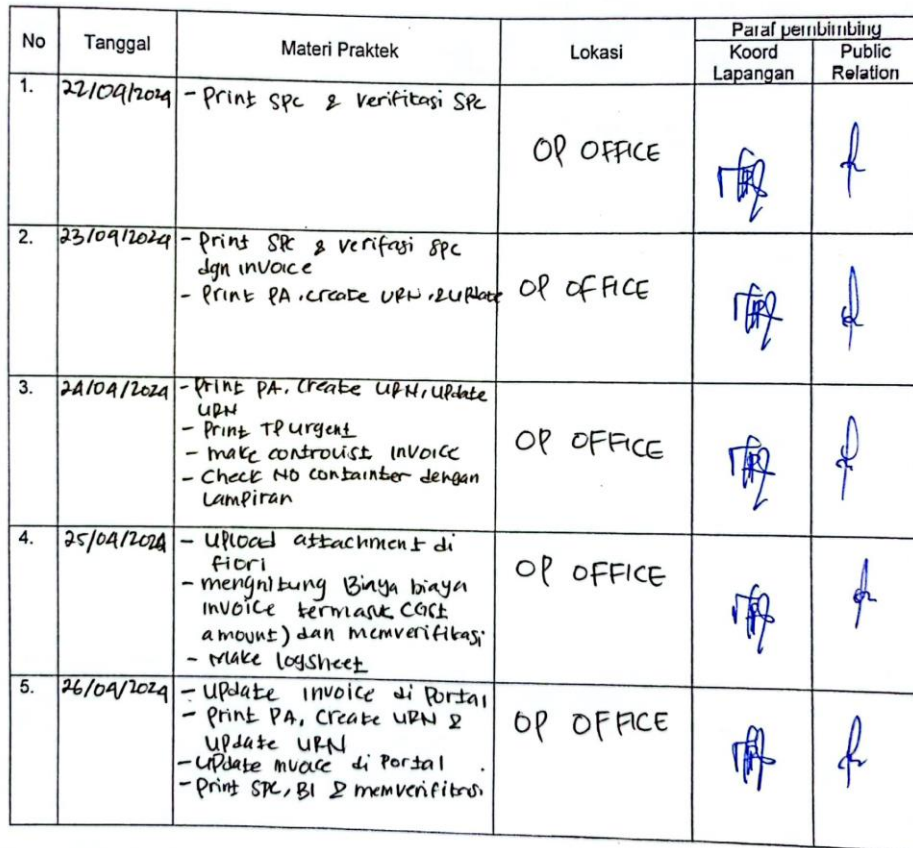 No Tanggal Materi Praktek Lokasi Paraf pembimbing
Koord Lapangan Public Relation
1. 22/09/2024 - Print SPC & verifikasi SPC
OP OFFICE
2. 23/09/2024 - Print SPC & verifasi SPC
dgn invoice
- Print PA, create URN, & update
OP OFFICE
3. 24/09/2024 - Print PA, Create URN, Update
URN
- Print TP urgent
- make controlist invoice
- Check NO containber dengan
Lampiran
OP OFFICE
4. 25/09/2024 - Upload attachment di
fiori
- menghitung Biaya biaya
invoice termasuk (GST
amount) dan memverifikasi
- Make logsheet
OP OFFICE
5. 26/09/2024 - Update invoice di Portal
- Print PA, Create URN &
update URN
- Update invoice di Portal
- Print SPC, BI & memverifikasi
OP OFFICE